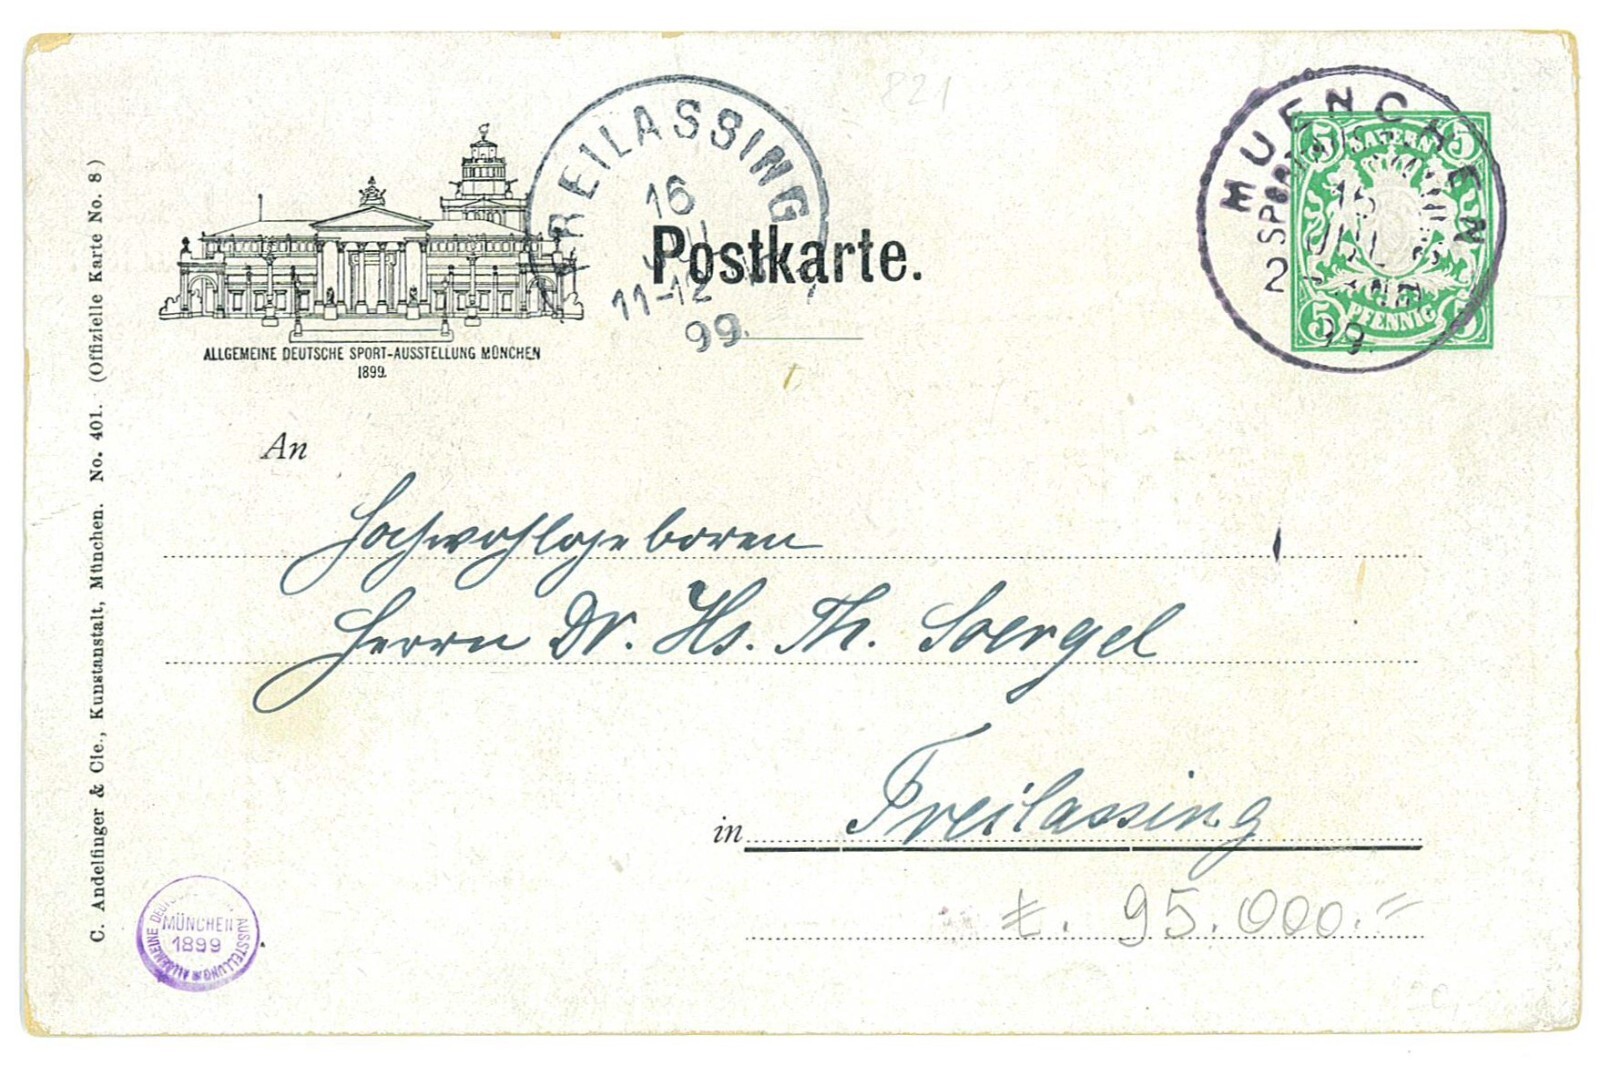 C. Andelfinger & Cie., Kunstanstalt, München. No. 401. (Offizielle Karte No. 8)
ALLGEMEINE DEUTSCHE SPORT-AUSSTELLUNG MÜNCHEN
1899.
FREILASSING
16
11-12
99.
821
Postkarte.
MUENCHEN
15
JUL
2
99.
5 BAYERN 5
5 PFENNIG 5
An
Hochwohlgeboren
Herrn Dr. Hs. Th. Soergel
Freilassing
in
£. 95.000.=
ALLGEMEINE AUSSTELLUNG
MÜNCHEN
1899